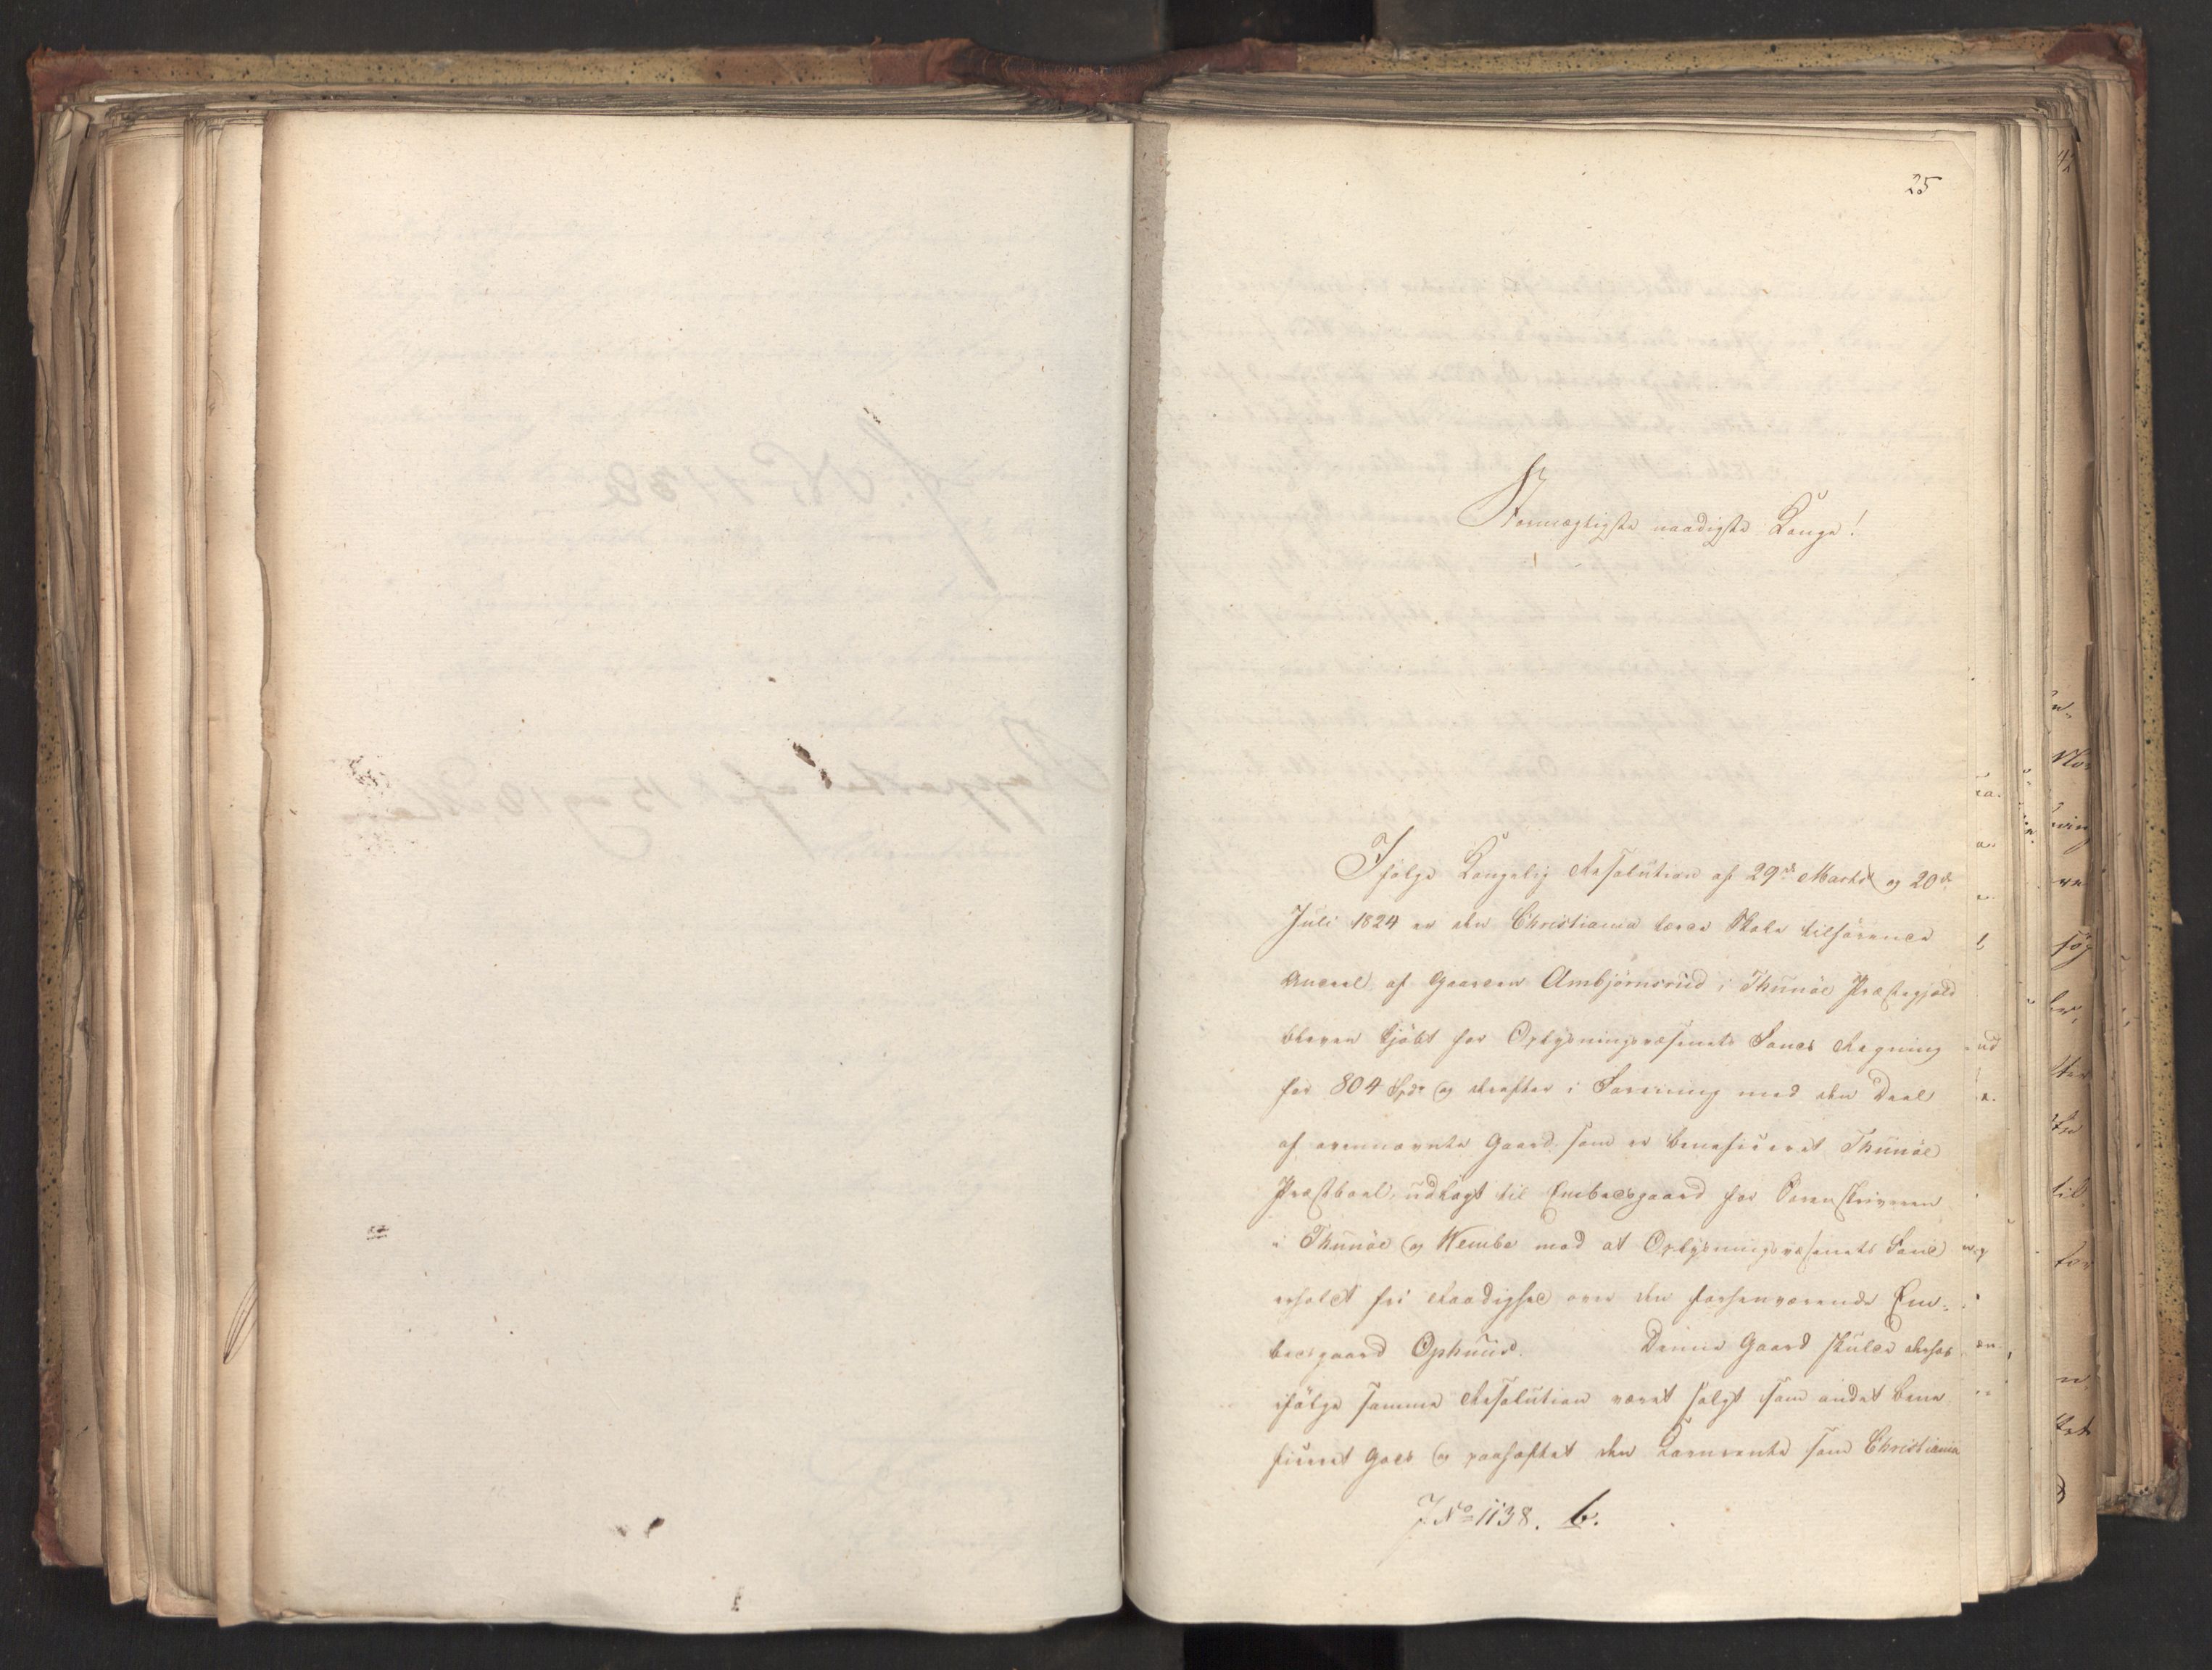 25
Stormægtigste naadigste Konge!
Ifølge Kongelig Resolution af 29de Marts og 20de
Juli 1824 er den Christiania lærde Skole tilhørende
Andeel af Gaarden Ambjørnsrud i Thunøe Præstegjæld
bleven kjøbt for Oplysningsvæsenets Fonds Regning
for 804 Spd. og derefter i Forening med den Deel
af ovennævnte Gaard som er beneficeret Thunøe
Præstbool, udlagt til Embedsgaard for Sorenskriveren
i Thunøe og Wembe mod at Oplysningsvæsenets Fond
erholdt fri Raadighed over den forhenværende Em-
bedsgaard Ophuus. Denne Gaard skulde derhos
ifølge samme Resolution været solgt som andet bene
ficeret Gods og paaheftet den Kornrente som Christiania
J No 1138. b.